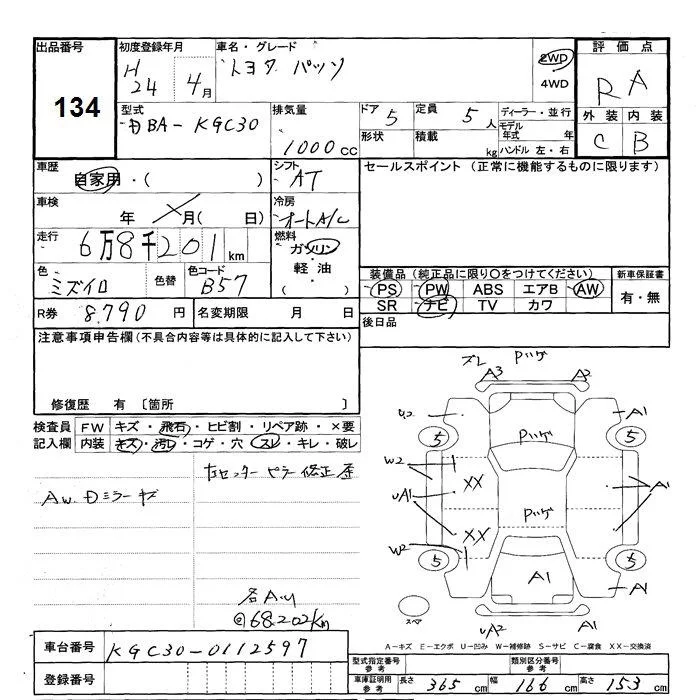 出品番号 初度登録年月 車名・グレード 評価点
134 H24年4月 トヨタ パッソ 2WD RA
4WD
型式 排気量 ドア 5 定員 5人 ディーラー・並行 外装 内装
DBA-KGC30 1000cc 形状 積載 kg モデル年式 年 C B
ハンドル 左・右
車歴 シフト セールスポイント (正常に機能するものに限ります)
自家用・( ) AT
車検 年 月( 日) 冷房 オートA/C
走行 6万8千201km 燃料 ガソリン
軽油
( )
色 ミズイロ 色替 色コード B57
装備品 (純正品に限り○をつけてください) 新車保証書
PS PW ABS エアB AW 有・無
SR ナビ TV カワ
R券 8,790円 名変期限 月 日 後日品
注意事項申告欄(不具合内容等は具体的に記入して下さい)
修復歴 有 〔箇所 〕
検査員 FW キズ・飛石・ヒビ割・リペア跡・×要
記入欄 内装 キズ・汚レ・コゲ・穴・スレ・キレ・破レ
左センターピラー修正歴
AW.Dミラーキズ
@68.202km
ズレ Pハゲ
A3 A2
U2 A1
5 5
W2 Pハゲ
UA1 XX A1
XX Pハゲ
W2
5 5
A1 A1
スペア UA2 A1
A-キズ E-エクボ U-凹み W-補修跡 S-サビ C-腐食 XX-交換済
車台番号 KGC30-0112597
登録番号
型式指定番号 参考 類別区分番号 参考
車庫証明用 参考 長さ 365cm 幅 166cm 高さ 153cm